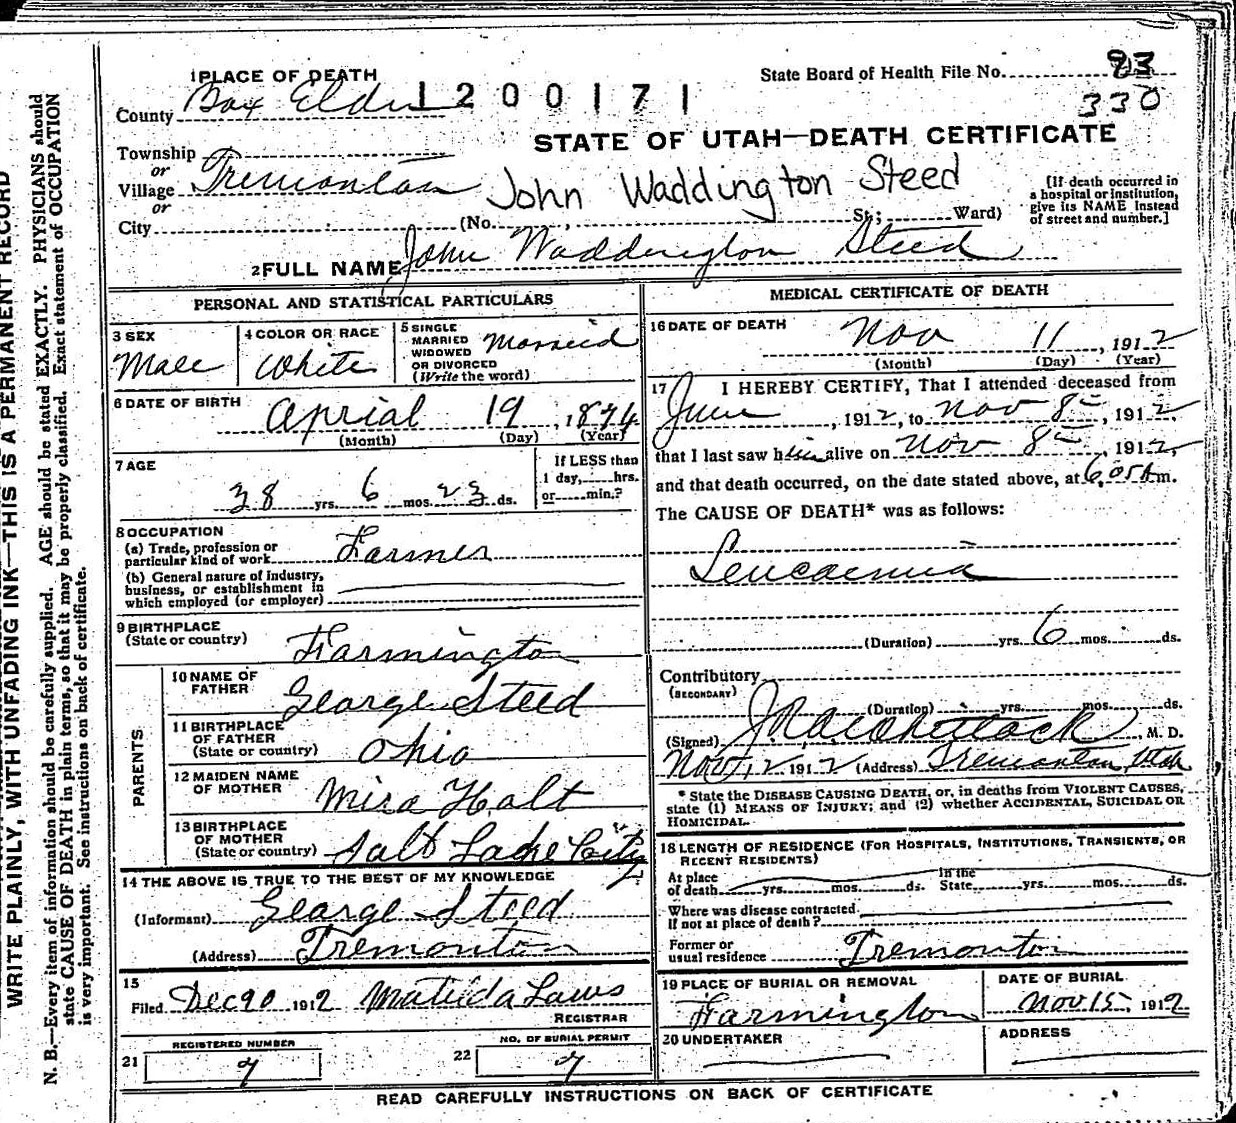 1 PLACE OF DEATH
State Board of Health File No. 83
330
County Box Elder 1200171
STATE OF UTAH—DEATH CERTIFICATE
Township
or
Village Tremonton
John Waddington Steed
or
City (No. St; Ward)
[If death occurred in
a hospital or institution,
give its NAME instead
of street and number.]
2 FULL NAME John Waddington Steed
PERSONAL AND STATISTICAL PARTICULARS
3 SEX
Male
4 COLOR OR RACE
White
5 SINGLE
MARRIED
WIDOWED
OR DIVORCED
(Write the word)
Married
6 DATE OF BIRTH
Aprial 19, 1874
(Month) (Day) (Year)
7 AGE
38 yrs. 6 mos. 23 ds.
If LESS than
1 day, hrs.
or min.?
8 OCCUPATION
(a) Trade, profession or
particular kind of work Farmer
(b) General nature of industry,
business, or establishment in
which employed (or employer)
9 BIRTHPLACE
(State or country)
Farmington
PARENTS
10 NAME OF
FATHER
George Steed
11 BIRTHPLACE
OF FATHER
(State or country) Ohio
12 MAIDEN NAME
OF MOTHER
Mira Halt
13 BIRTHPLACE
OF MOTHER
(State or country) Salt Lake City
14 THE ABOVE IS TRUE TO THE BEST OF MY KNOWLEDGE
(Informant) George Steed
(Address) Tremonton
15
Filed Dec 20 1912 Matilda Laws
REGISTRAR
21 REGISTERED NUMBER
7
22 NO. OF BURIAL PERMIT
7
MEDICAL CERTIFICATE OF DEATH
16 DATE OF DEATH
Nov 11, 1912
(Month) (Day) (Year)
17 I HEREBY CERTIFY, That I attended deceased from
June, 1912, to Nov 8, 1912
that I last saw him alive on Nov 8, 1912,
and that death occurred, on the date stated above, at 6.05 A m.
The CAUSE OF DEATH* was as follows:
Leucaemia
(Duration) yrs. 6 mos. ds.
Contributory
(SECONDARY)
(Duration) yrs. mos. ds.
(Signed) M. D.
Nov, 12 1912 (Address) Tremonton, Utah
* State the DISEASE CAUSING DEATH, or, in deaths from VIOLENT CAUSES,
state (1) MEANS OF INJURY; and (2) whether ACCIDENTAL, SUICIDAL OR
HOMICIDAL.
18 LENGTH OF RESIDENCE (FOR HOSPITALS, INSTITUTIONS, TRANSIENTS, OR
RECENT RESIDENTS)
At place
of death yrs. mos. ds. In the
State yrs. mos. ds.
Where was disease contracted,
if not at place of death?
Former or
usual residence Tremonton
19 PLACE OF BURIAL OR REMOVAL
Farmington
DATE OF BURIAL
Nov 15, 1912
20 UNDERTAKER
ADDRESS
READ CAREFULLY INSTRUCTIONS ON BACK OF CERTIFICATE
WRITE PLAINLY, WITH UNFADING INK—THIS IS A PERMANENT RECORD
N. B.—Every item of information should be carefully supplied. AGE should be stated EXACTLY. PHYSICIANS should
state CAUSE OF DEATH in plain terms, so that it may be properly classified. Exact statement of OCCUPATION
is very important. See instructions on back of certificate.